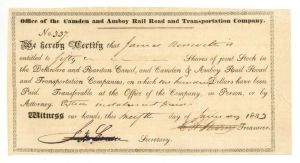 Office of the Camden and Amboy Rail Road and Transportation Company.
No. 337
We hereby Certify that James
entitled to fifty Shares of Joint Stock in
the Delaware and Raritan Canal, and Camden & Amboy Rail Road
and Transportation Companies, on which one hundred Dollars have been
Paid. Transferable at the Office of the Company, in Person, or by
Attorney.
Witness our hands, this day of 1833
Treasurer.
Secretary.